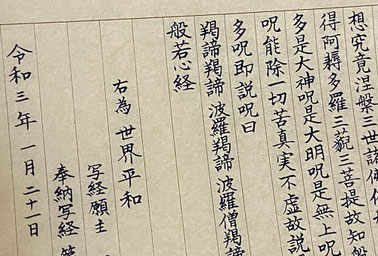 想究竟涅槃三世諸佛依
得阿耨多羅三藐三菩提故知般
多是大神呪是大明呪是無上呪
呪能除一切苦真実不虚故説
多呪即説呪曰
羯諦羯諦 波羅羯諦 波羅僧羯諦
般若心経
右為 世界平和
写経願主
奉納写経
令和三年一月二十一日